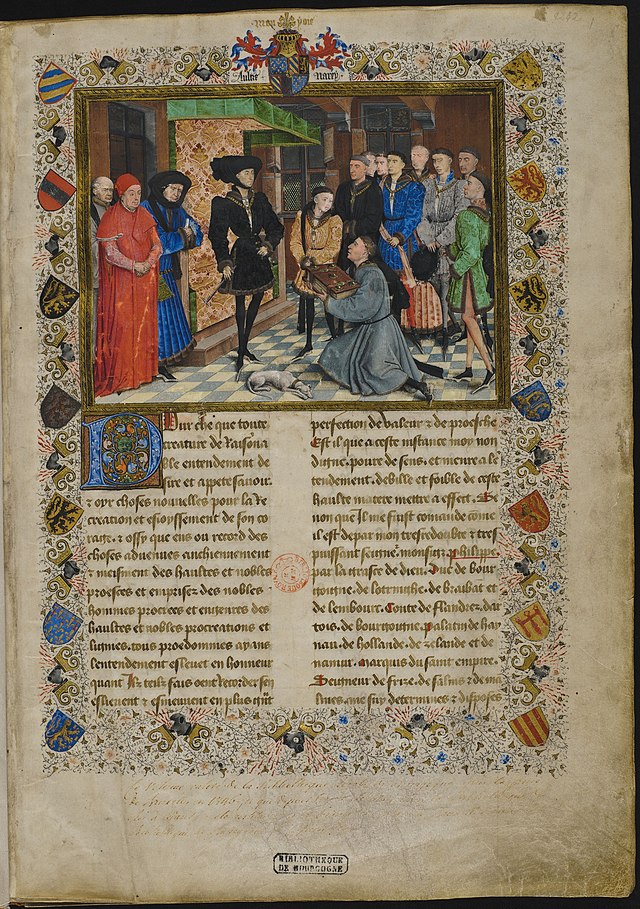 Aultre Naray
Pour che que toute
creature de Raisona
ble entendement de
sire et appete savoir
& oyr choses nouvelles pour la Re
creation et esioyssement de son co
rage. & ossy que ens ou record des
choses advenues anchiennement
& meisment des haultes et nobles
proesces et emprises des nobles
hommes procrees et engenres des
haultes et nobles procreations et
lignies. tous proedommes ayans
lentendement eslevet en honneur
quant Ilz telz fais oent Recorder sen
eslievent et esmeuvent en plus grant
perfection de valeur & de proesche
Est il que a ceste instance moy non
digne. povre de sens. et menre de
tendement. debille et foible de ceste
haulte matere mettre a effect. Se
non que Il me fuist comande come
il est de par mon tresredoubte & tres
puissant seigneur. monseigneur Philippe
par la grasce de dieu. Duc de Bour
gongne. de lotringhe. de braibat et
de lembourc. Conte de flandres. dar
tois. de bourgoingne. Palatin de hay
nau. de hollande. de zelande et de
namur. Marquis du saint empire.
Seigneur de frize. de salins & de ma
lines. me suy determines & disposes
BIBLIOTHEQUE
DE BOURGOGNE